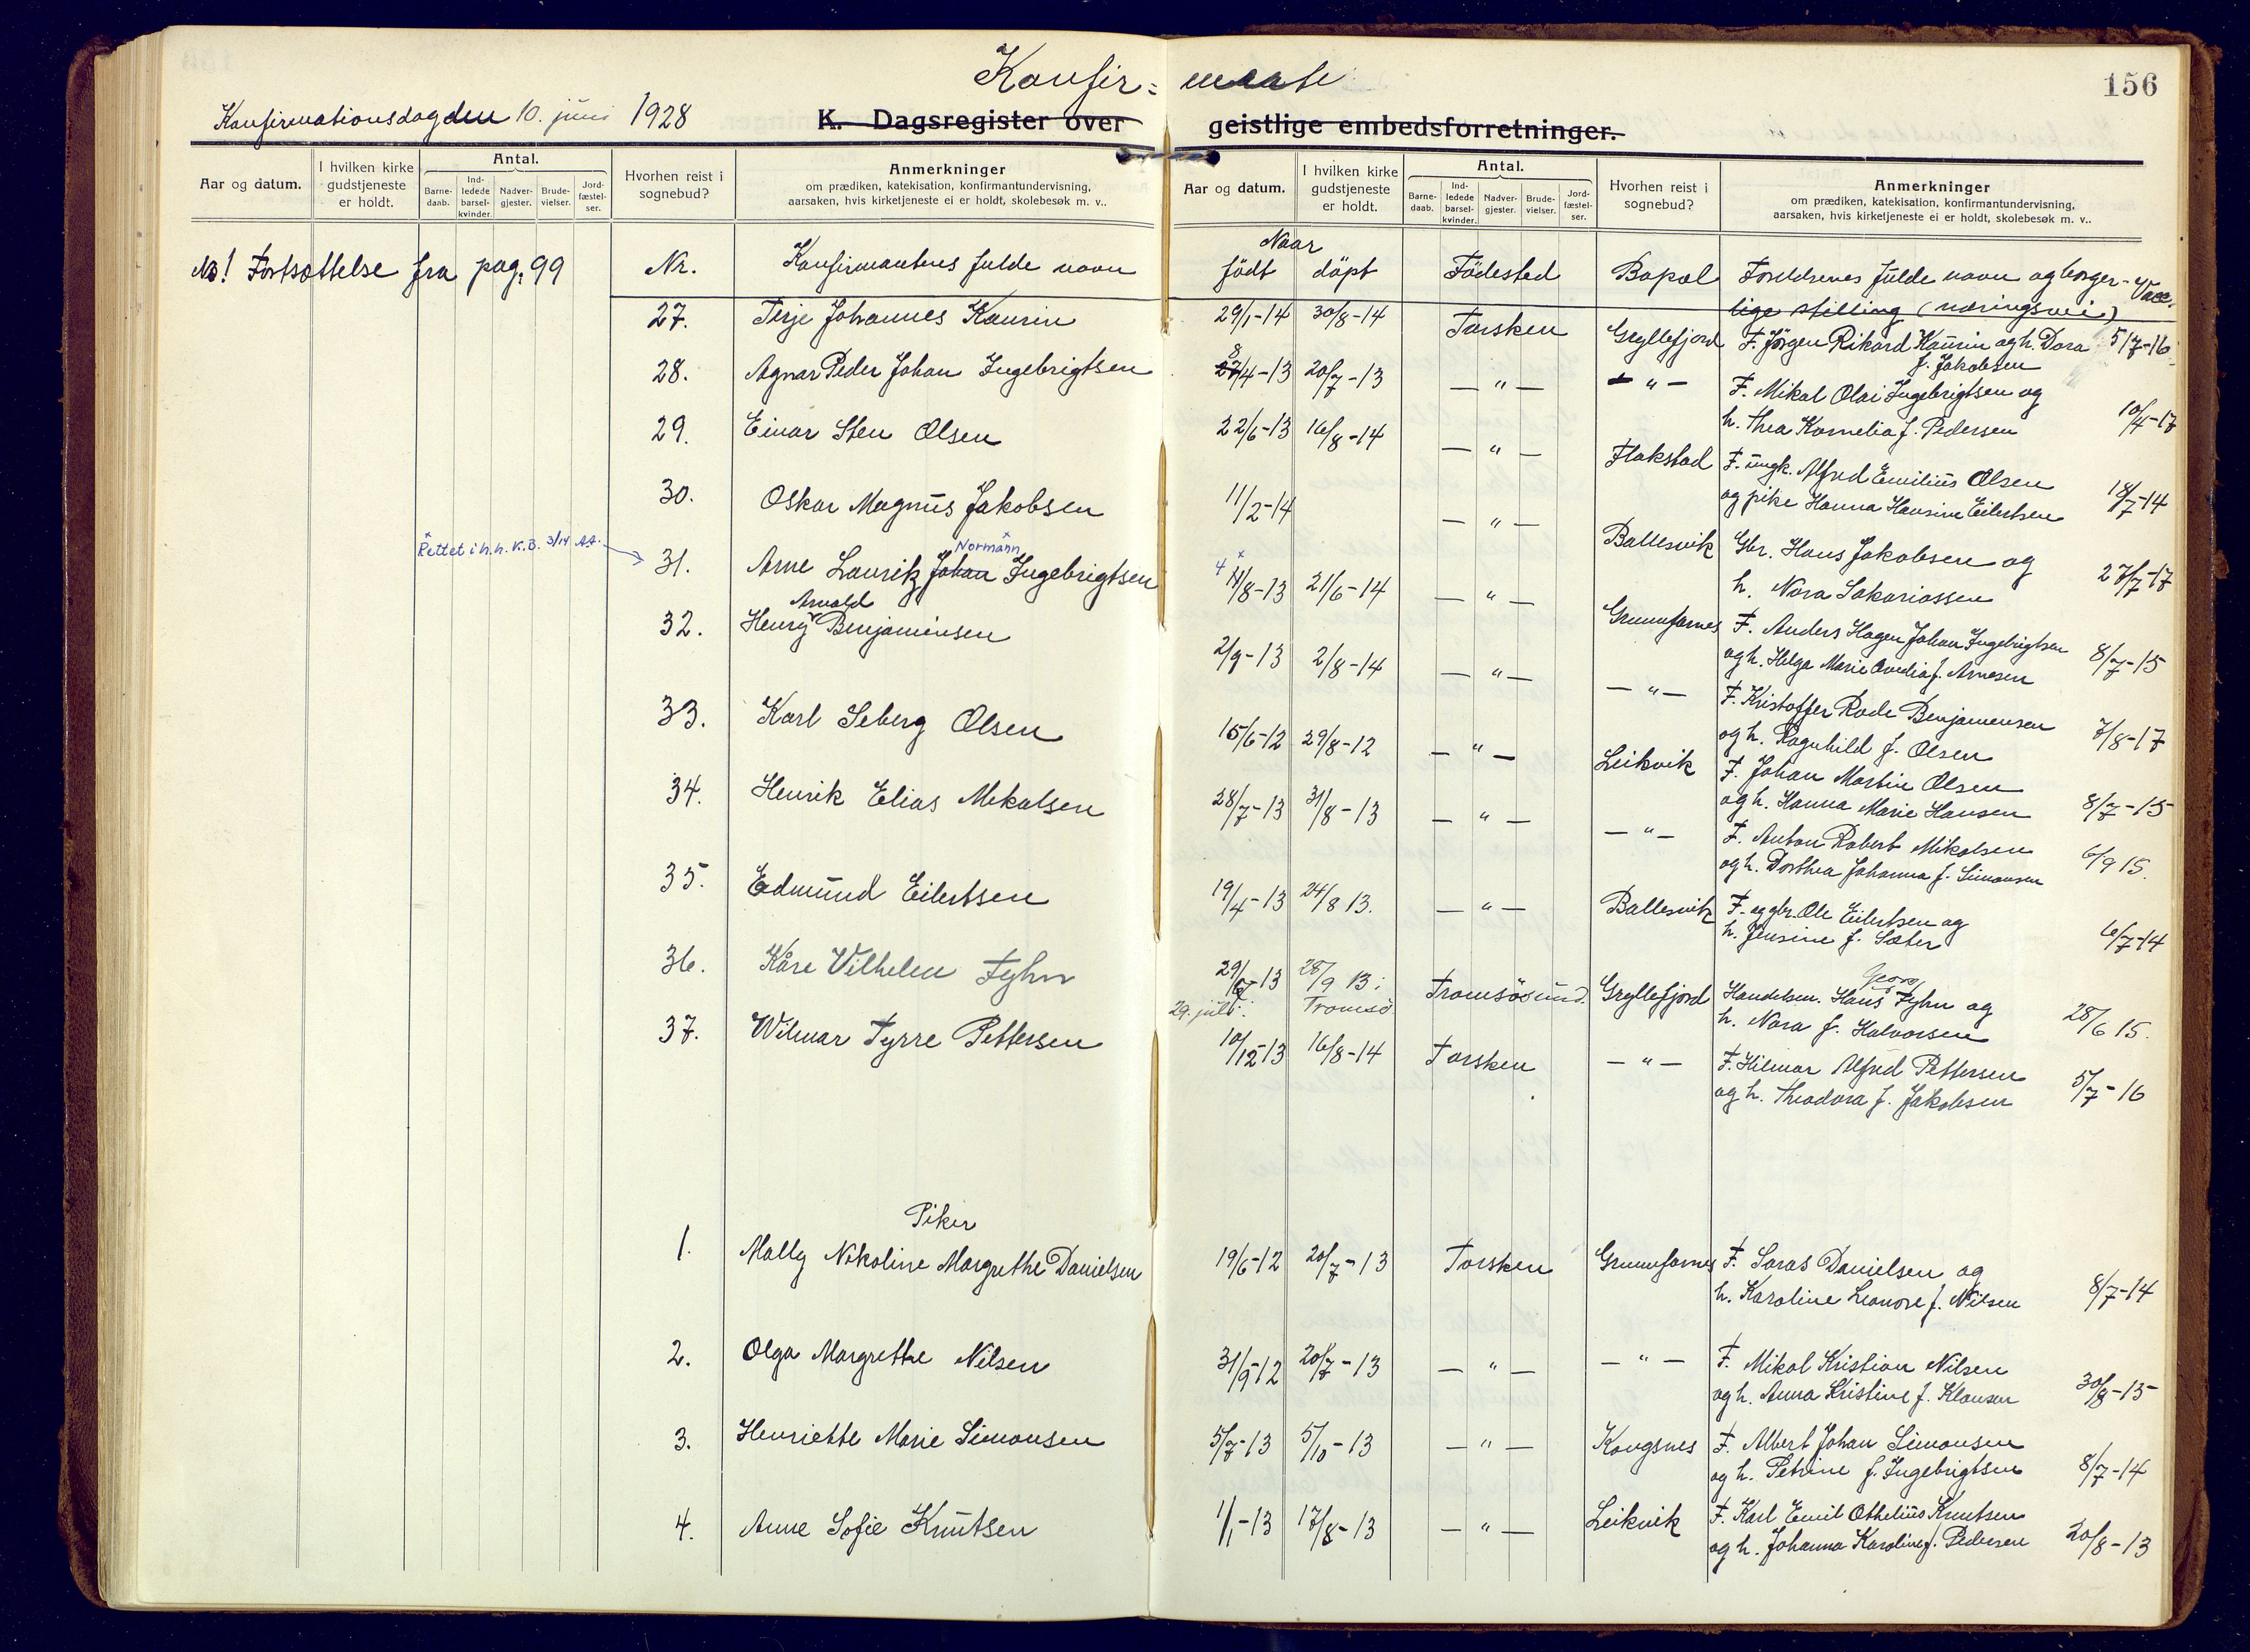 156
Konfir= mante
Konfirmationsdag den 10. juni 1928
K. Dagsregister over geistlige embedsforretninger.
Aar og datum. I hvilken kirke gudstjeneste er holdt. Antal. Barne-daab. Ind-ledede barsel-kvinder. Nadver-gjester. Brude-vielser. Jord-fæstel-ser. Hvorhen reist i sognebud? Anmerkninger om prædiken, katekisation, konfirmantundervisning, aarsaken, hvis kirketjeneste ei er holdt, skolebesøk m. v..
Aar og datum. I hvilken kirke gudstjeneste er holdt. Antal. Barne-daab. Ind-ledede barsel-kvinder. Nadver-gjester. Brude-vielser. Jord-fæstel-ser. Hvorhen reist i sognebud? Anmerkninger om prædiken, katekisation, konfirmantundervisning, aarsaken, hvis kirketjeneste ei er holdt, skolebesøk m. v..
NB! Fortsættelse fra pag. 99 Nr. Konfirmantens fulde navn Naar født døpt Fødested Bopæl Forældrenes fulde navn og borger-
lige stilling (næringsvei) Vacc.
27. Terje Johannes Kaurin 29/1-14 30/8-14 Torsken Gryllefjord F. Jørgen Rikard Kaurin og h. Dora
f. Jakobsen 5/7-16
28. Agnar Peder Johan Ingebrigtsen 8 27/4-13 20/7-13 — " — — " — F. Mikal Olai Ingebrigtsen og
h. Thea Kornelia f. Pedersen 10/4-17
29. Einar Sten Olsen 22/6-13 16/8-14 — " — Flakstad F. ungk. Alfred Emilius Olsen
og pike Hanna Hansine Eilertsen 18/7-14
30. Oskar Magnus Jakobsen 11/2-14 — " — Ballesvik Gbr. Hans Jakobsen og
h. Nora Sakariassen 27/7-17
Rettet i h.h. K.B. 3/14 AA. 31. Arne Lauritz Johan Normann Ingebrigtsen 4 11/8-13 21/6-14 — " — Grunnfarnes F. Anders Hagen Johan Ingebrigtsen
og h. Helga Marie Ovedia f. Arnesen 8/7-15
32. Henry Arnold Benjaminsen 2/9-13 2/8-14 — " — — " — F. Kristoffer Rode Benjaminsen
og h. Ragnhild f. Olsen 7/8-17
33. Karl Seberg Olsen 15/6-12 29/8-12 — " — Leikvik F. Johan Martin Olsen
og h. Hanna Marie Hansen 8/7-15
34. Henrik Elias Mikalsen 28/7-13 31/8-13 — " — — " — F. Anton Robert Mikalsen
og h. Dorthea Johanna f. Simonsen 6/9 15.
35. Edmund Eilertsen 19/4-13 24/8 13. — " — Ballesvik F. og gbr. Ole Eilertsen og
h. Jensine f. Sæter 6/7-14
36. Kåre Vilhelm Fyhn 29/6-13 29. juli: 28/9 13 i Tromsø Tromsøsund. Gryllefjord Handelsm. Hans Georg Fyhn og
h. Nora f. Halvorsen 28/6 15.
37. Wilmar Tyrre Pettersen 10/12-13 16/8-14 Torsken — " — F. Hilmar Alfred Pettersen
og h. Theodora f. Jakobsen 5/7-16
Piker
1. Mally Nikoline Margrethe Danielsen 19/6-12 20/7-13 Torsken Grunnfarnes F. Saras Danielsen og
h. Karoline Leonore f. Nilsen 8/7-14
2. Olga Margrethe Nilsen 31/9-12 20/7-13 — " — — " — F. Mikal Kristian Nilsen
og h. Anna Kristine f. Klausen 30/8-15
3. Henriette Marie Simonsen 5/7-13 5/10-13 — " — Kongsnes F. Albert Johan Simonsen
og h. Petrine f. Ingebrigtsen 8/7-14
4. Anne Sofie Knutsen 1/1-13 17/8-13 — " — Leikvik F. Karl Emil Othelius Knutsen
og h. Johanna Karoline f. Pedersen 20/8-13